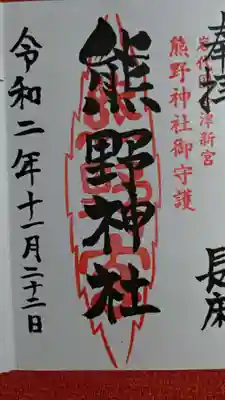 奉拝
長床
岩代國會津新宮
熊野神社御守護
熊野神社
令和二年十一月二十二日